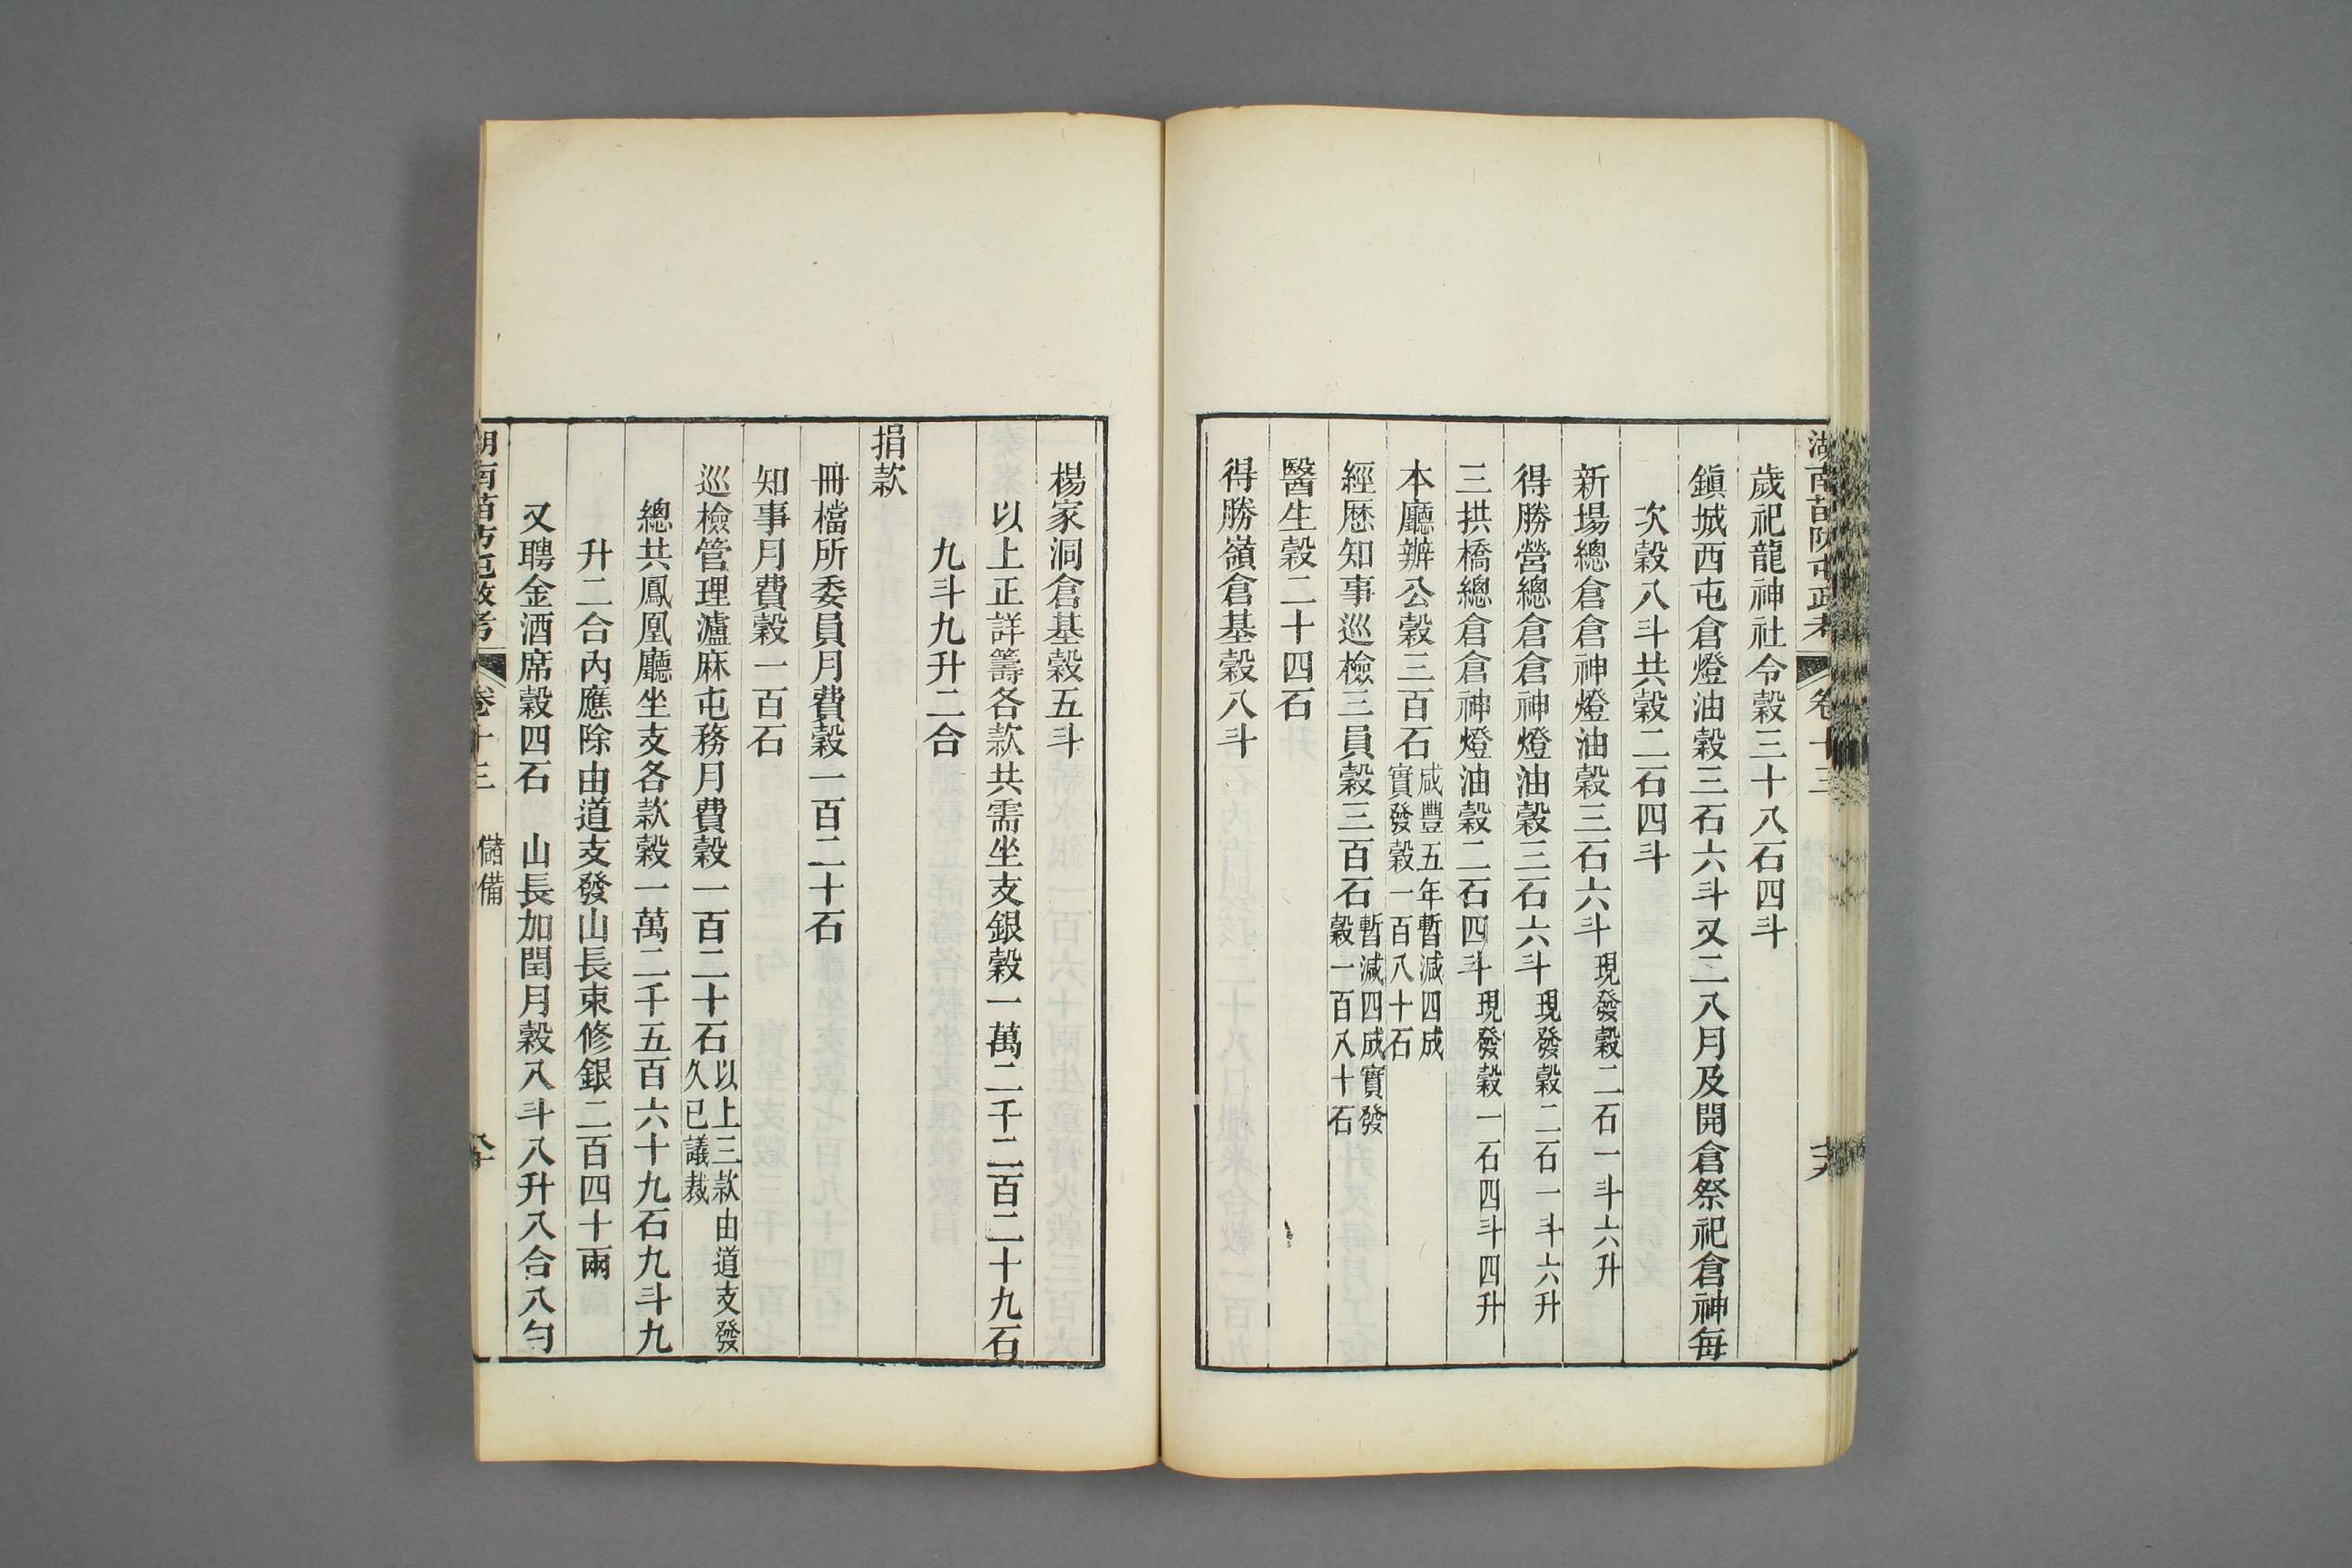 湖南苗防屯政考 卷十三
歲祀龍神社令穀三十八石四斗
鎮城西屯倉燈油穀三石六斗又二八月及開倉祭祀倉神每
次穀八斗共穀二石四斗
新場總倉倉神燈油穀三石六斗現發穀二石一斗六升
得勝營總倉倉神燈油穀三石六斗現發穀二石一斗六升
三拱橋總倉倉神燈油穀二石四斗現發穀一石四斗四升
本廳辦公穀三百石咸豐五年暫減四成實發穀一百八十石
經歷知事巡檢三員穀三百石暫減四成實發穀一百八十石
醫生穀二十四石
得勝嶺倉基穀八斗
楊家洞倉基穀五斗
以上正詳籌各款共需坐支銀穀一萬二千二百二十九石
九斗九升二合
捐款
冊檔所委員月費穀一百二十石
知事月費穀一百石
巡檢管理瀘麻屯務月費穀一百二十石以上三款由道支發久已議裁
總共鳳凰廳坐支各款穀一萬二千五百六十九石九斗九
升二合內應除由道支發山長束修銀二百四十兩
又聘金酒席穀四石 山長加閏月穀八斗八升八合八勺
湖南苗防屯政考 卷十三 儲備